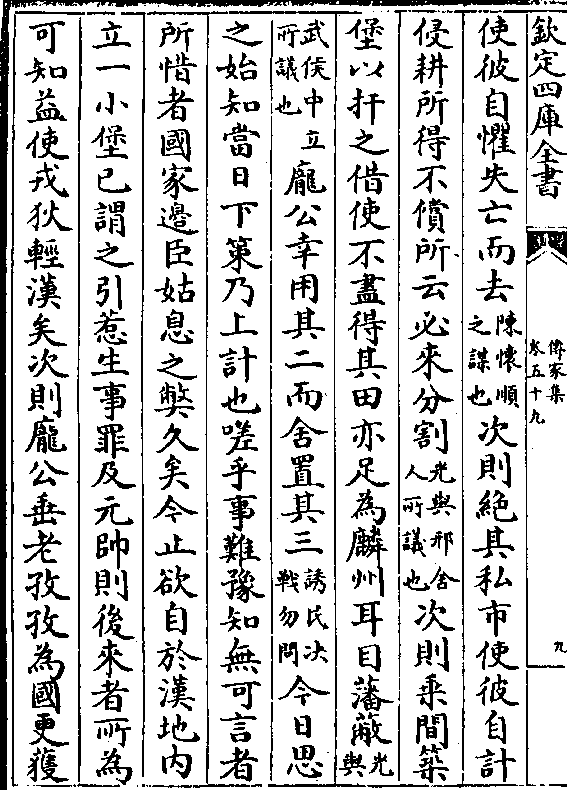 欽定四庫全書
傳家集
卷五十九
九
使彼自懼失亡而去陳懷順之謀也次則絶其私市使彼自計
侵耕所得不償所云必來分割光與邢舍人所議也次則乘間築
堡以扞之借使不盡得其田亦足為麟州耳目藩蔽光與
武侯中立所議也龐公幸用其二而舍置其三誘民决戰勿問今日思
之始知當日下策乃上計也嗟乎事難豫知無可言者
所惜者國家邊臣姑息之弊久矣今止欲自於漢地内
立一小堡已謂之引惹生事罪及元帥則後來者所為
可知益使戎狄輕漢矣次則龐公垂老孜孜為國更獲